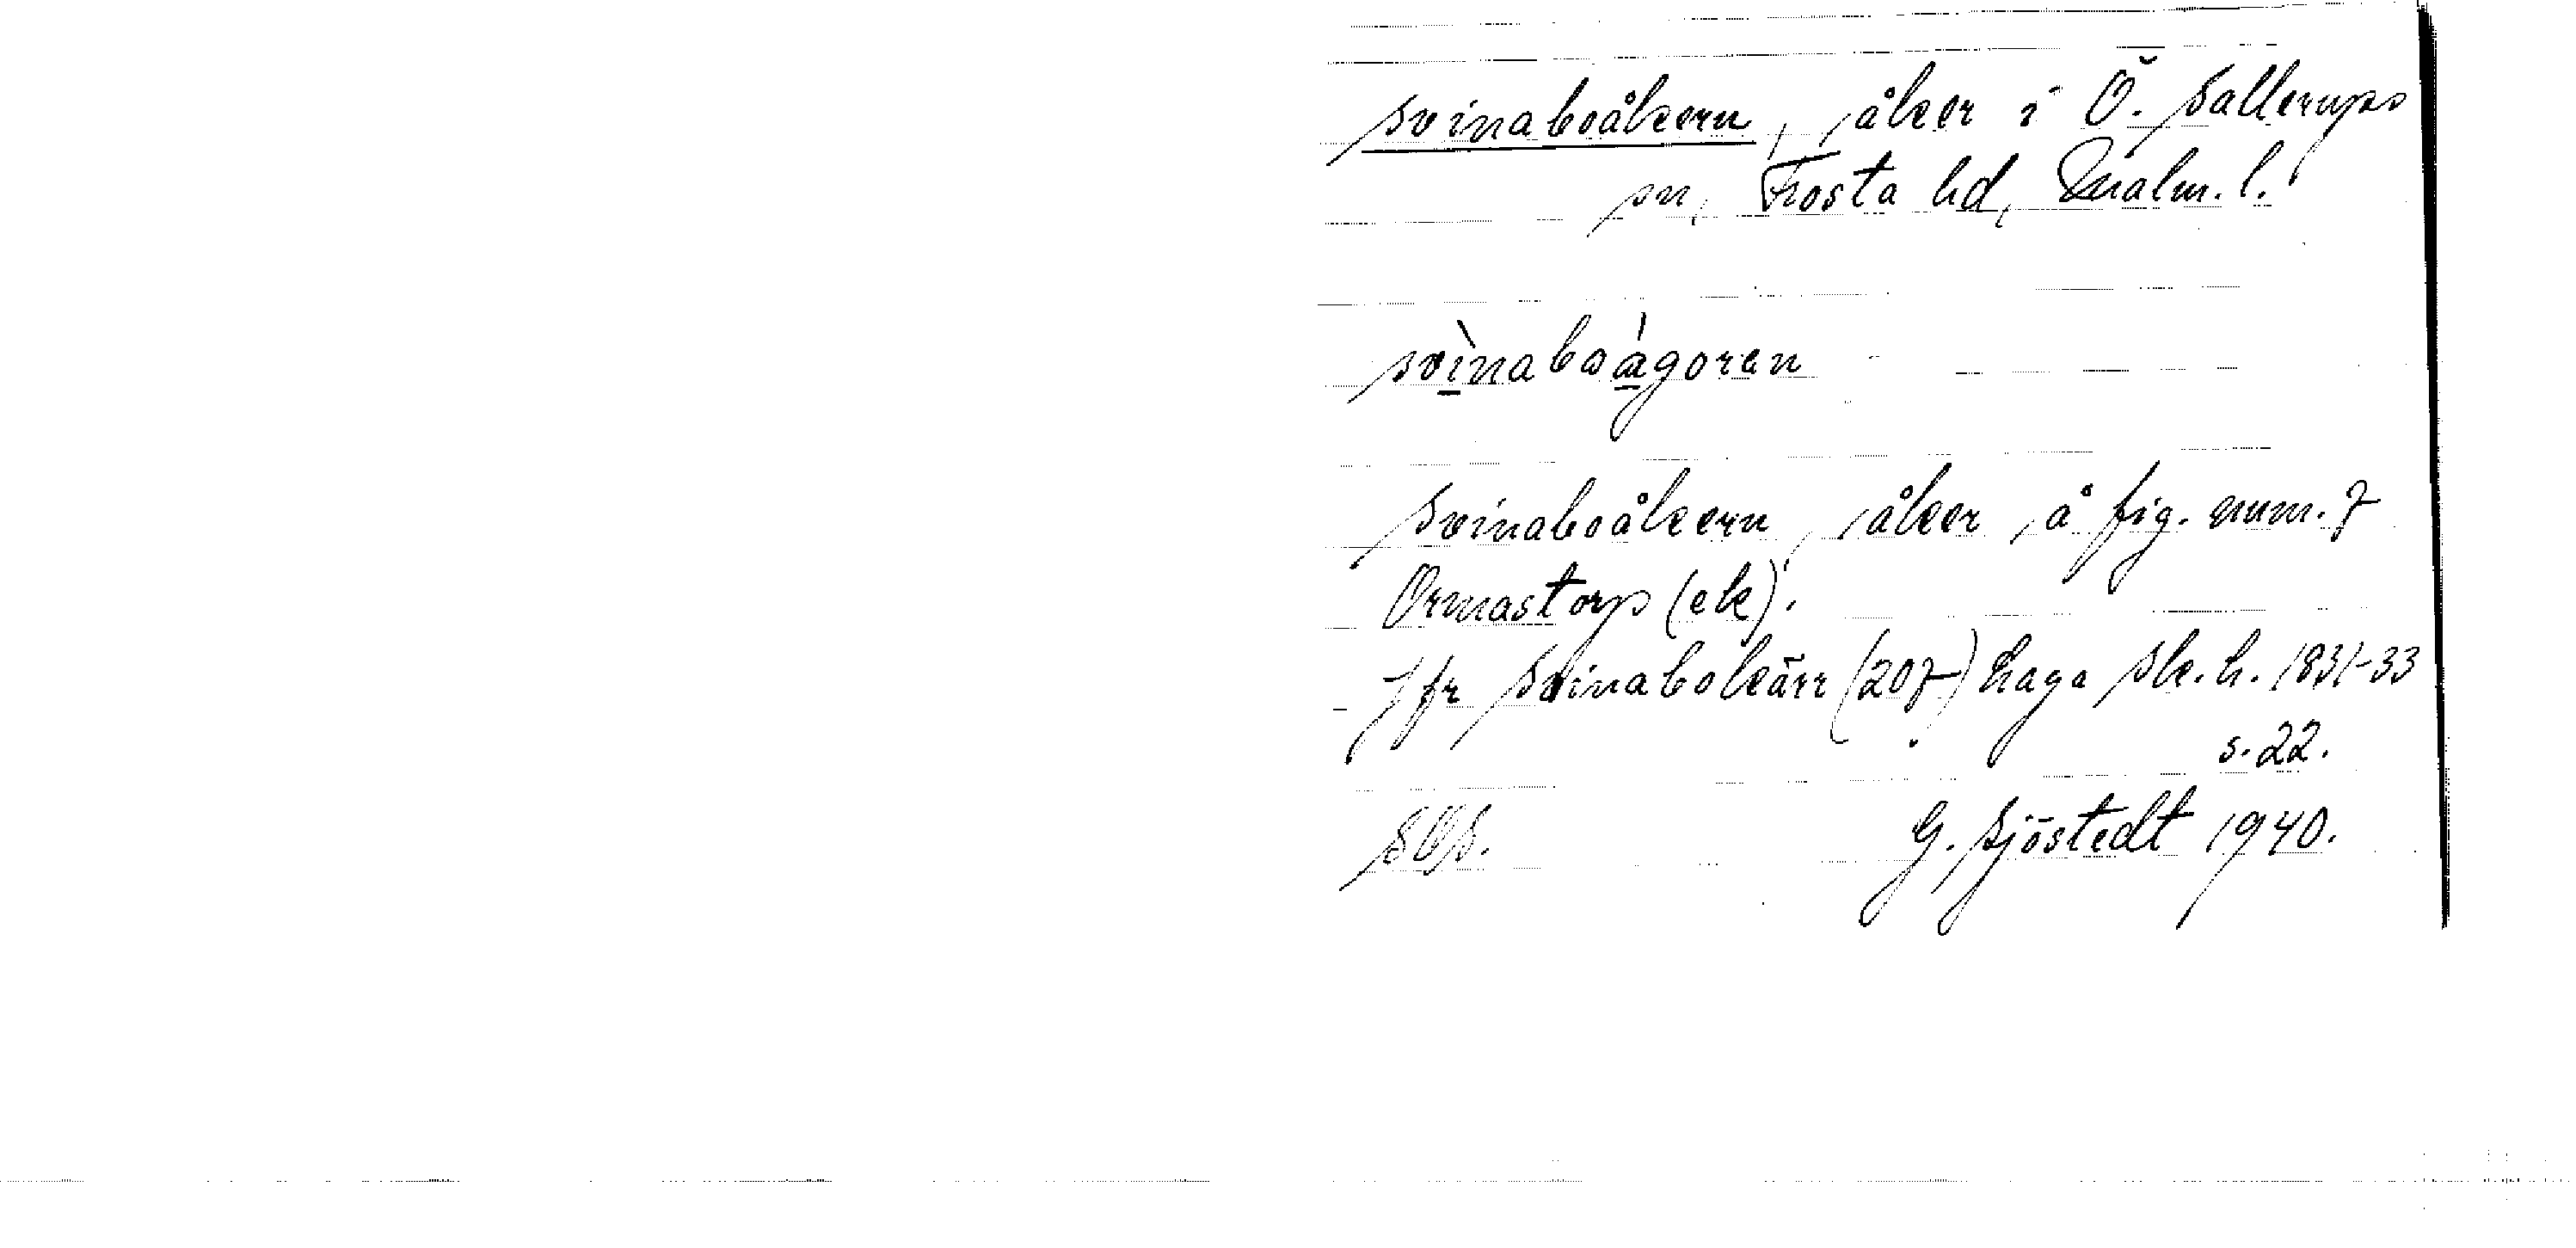 Svinaboåkern, åker i Ö. Sallerups
sn, Frosta hd, Malm. l.
svìnaboàgoran
Svinaboåkern, åker å fig. num. 7
Ormastorp (ek).
Jfr Svinabokärr (207) haga Sk.h. 1831-33
s. 22.
SOS. G. Sjöstedt 1940.